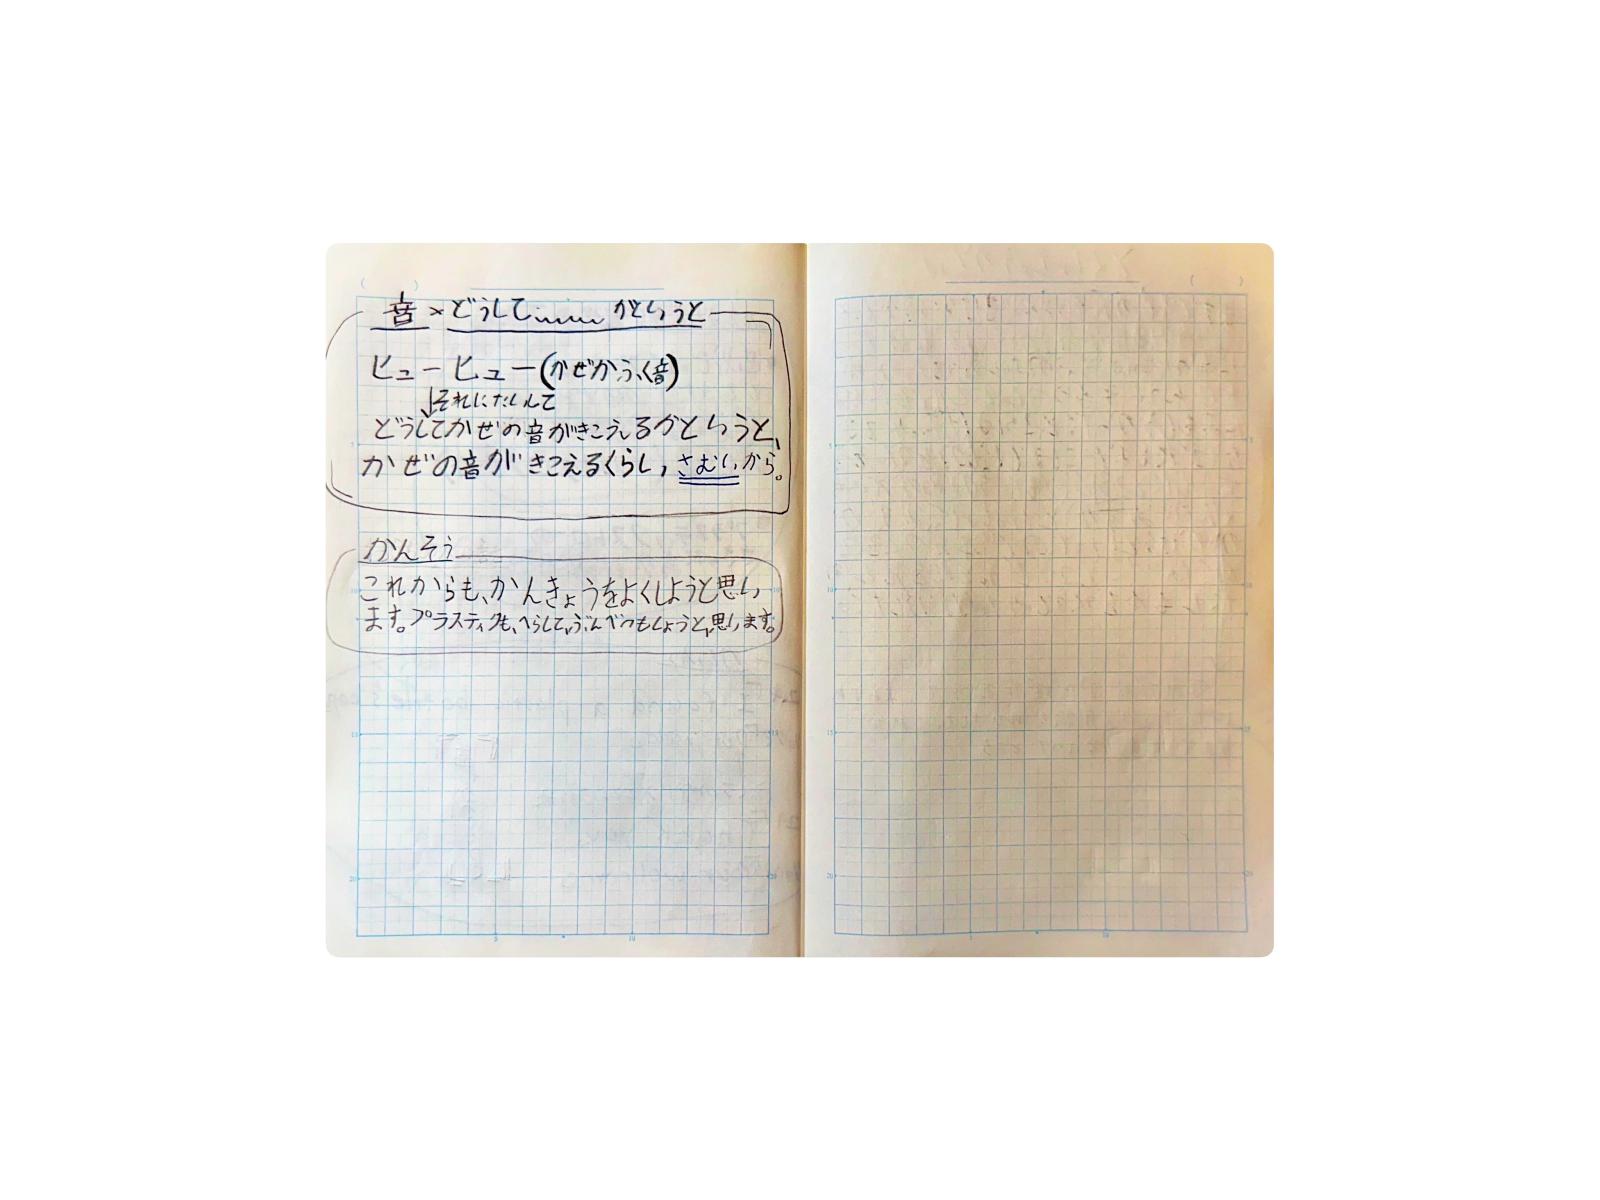 音×どうして〰〰かというと
ヒューヒュー(かぜがふく音)
↓それにたいして
どうしてかぜの音がきこえるかというと、
かぜの音がきこえるくらい、さむいから。
かんそう
これからも、かんきょうをよくしようと思い
ます。プラスティクも、へらして、ぶんべつもしようと、思います。